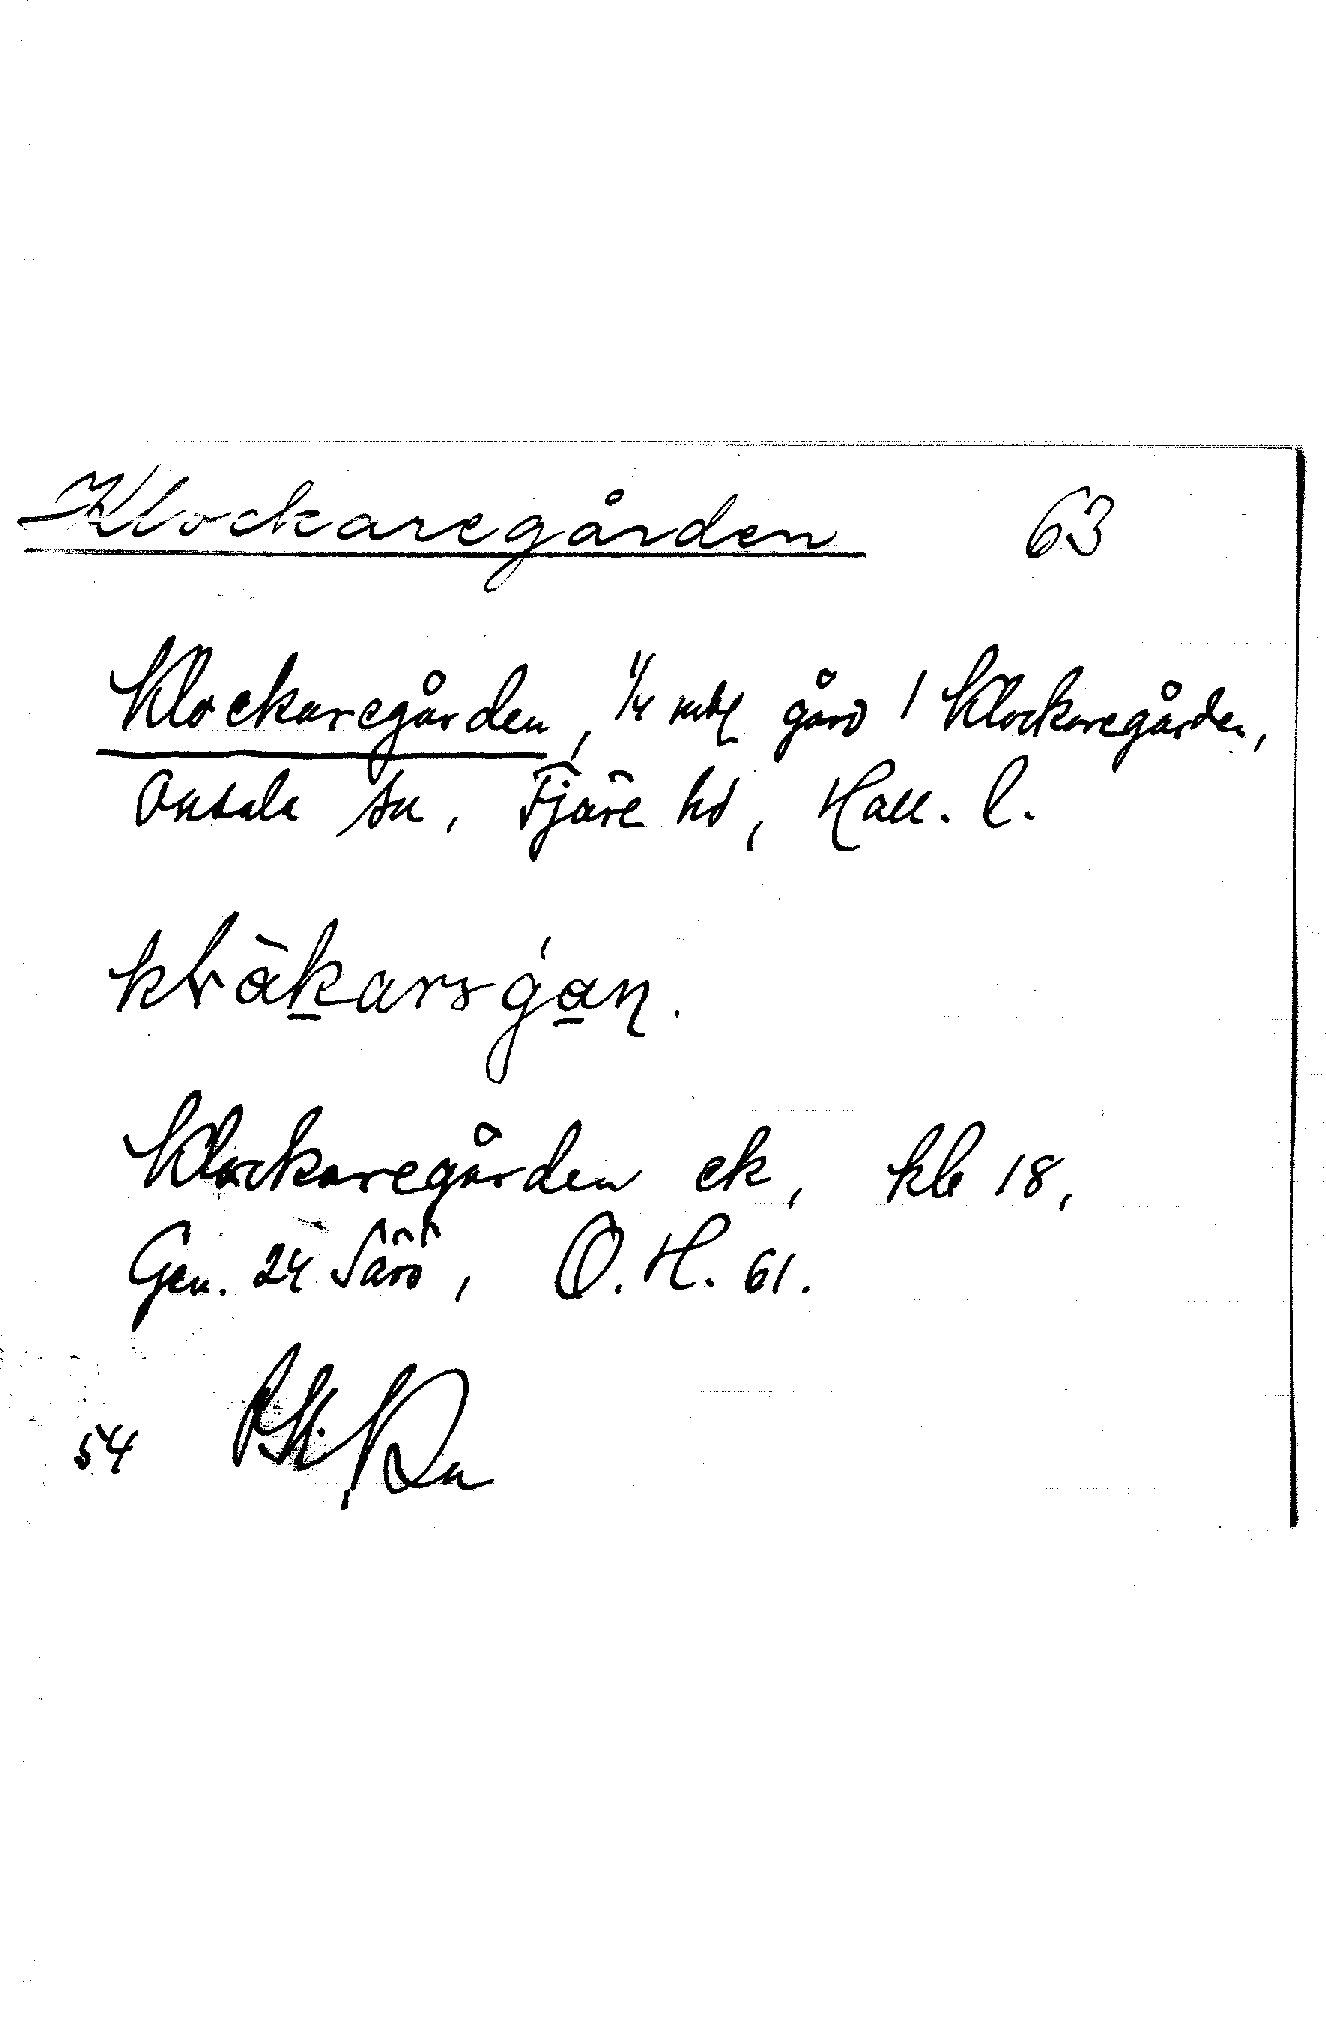 Klockaregården 63
Klockaregården, 1/4 mtl gård 1 Klockaregården,
Onsala sn, Fjäre hd, Hall. l.
Klockaregården ek, kb 18,
Gen. 24 Särö, O.H. 61.
54